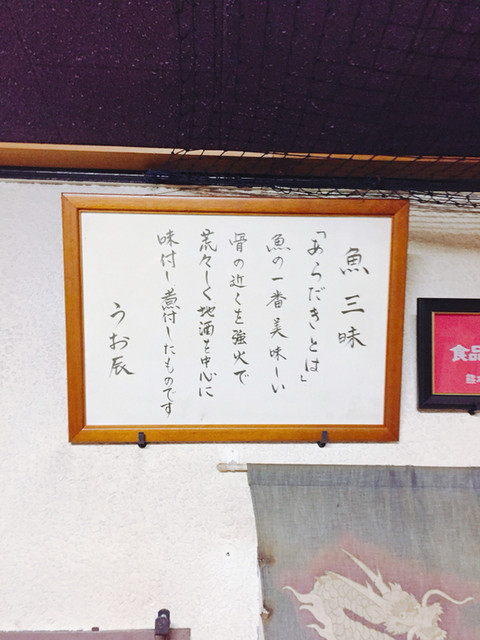 魚三昧
「あらだきとは」
魚の一番美味しい
骨の近くを強火で
荒々しく地酒を中心に
味付し煮付したものです
うお辰
食品